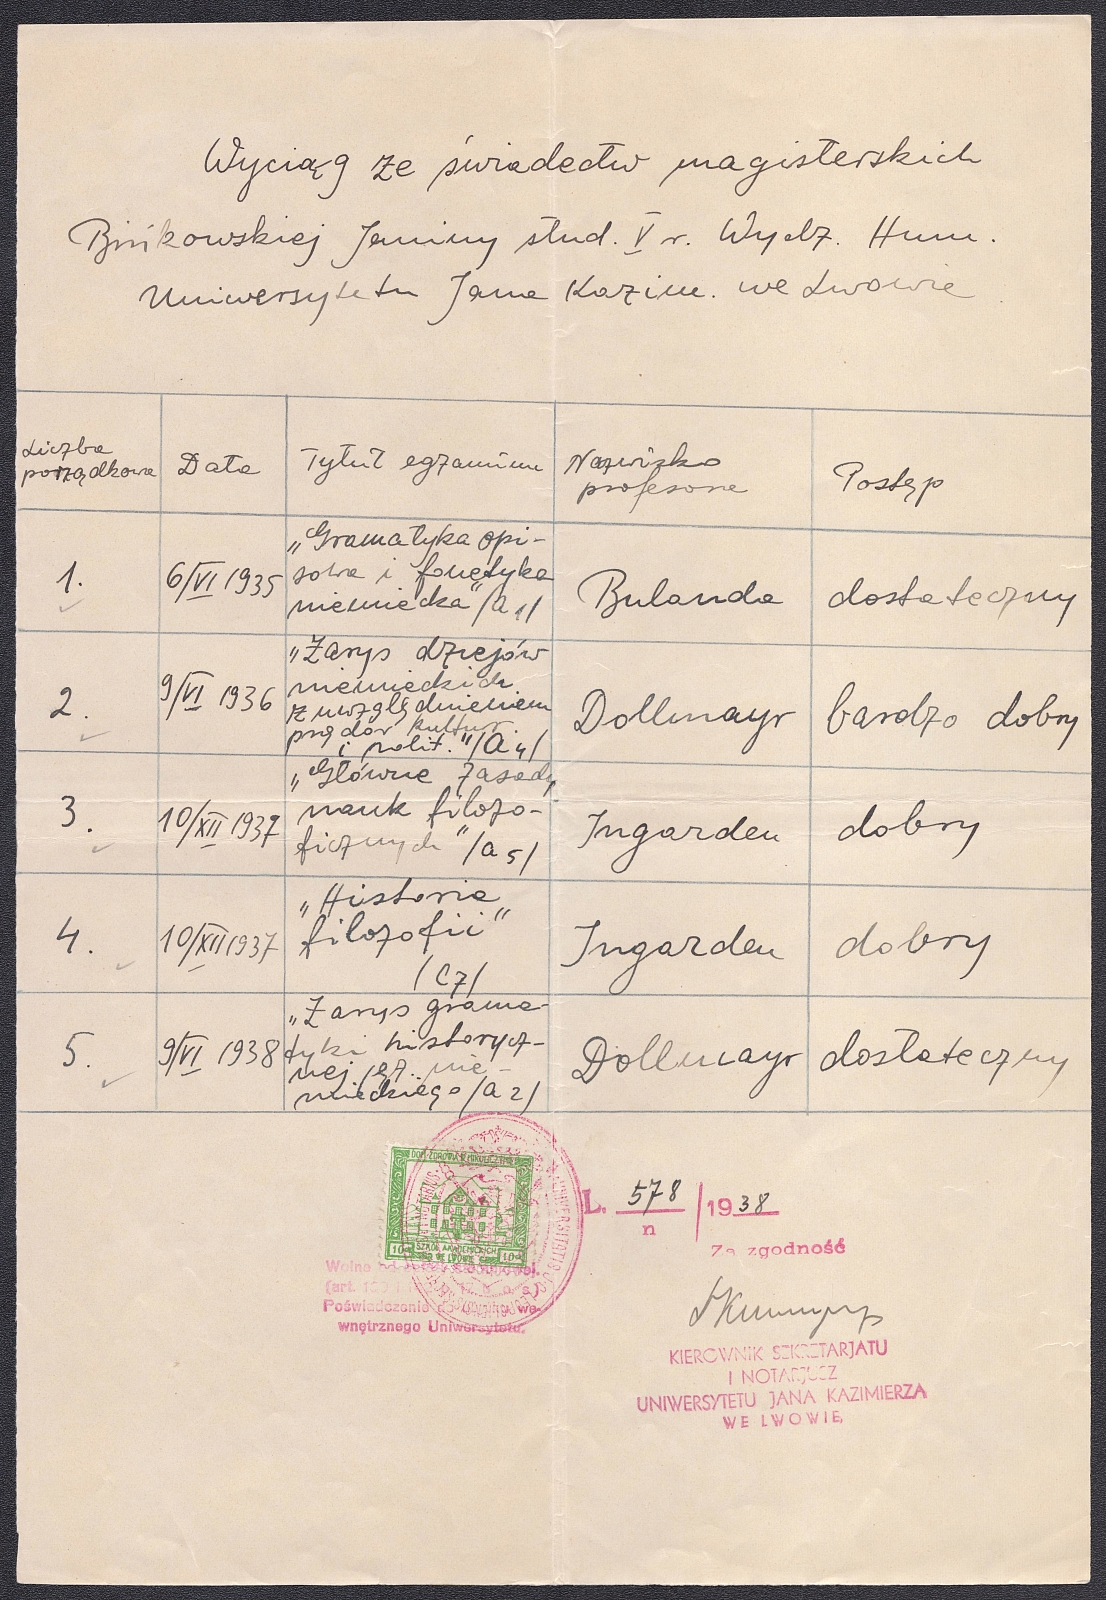 Wyciąg ze świadectw magisterskich
Bińkowskiej Janiny stud. V r. Wydz. Hum.
Uniwersytetu Jana Kazim. we Lwowie.
Liczba porządkowa
Data
Tytuł egzaminu
Nazwisko profesora
Postęp
1.
6/VI 1935
„Gramatyka opi-
sowa i fonetyka
niemiecka" /A 1/
Bulanda
dostateczny
2.
9/VI 1936
„Zarys dziejów
niemieckich
z uwzględnieniem
prądów kultur.
i polit." /A 4/
Dollmayr
bardzo dobry
3.
10/XII 1937
„Główne zasady
nauk filozo-
ficznych" /A 5/
Ingarden
dobry
4.
10/XII 1937
„Historia
filozofii"
/C7/
Ingarden
dobry
5.
9/VI 1938
„Zarys grama-
tyki historycz-
nej jęz. nie-
mieckiego /A 2/
Dollmayr
dostateczny
DOM ZDROWIA W MIKULICZYNIE
SZKÓŁ AKADEMICKICH
WE LWOWIE
10 10
UNIVERSITATIS
L. 578/n 1938
Za zgodność
Wolne
(art.
Poświadczenie do użytku we-
wnętrznego Uniwersytetu.
KIEROWNIK SEKRETARJATU
I NOTARJUSZ
UNIWERSYTETU JANA KAZIMIERZA
WE LWOWIE,